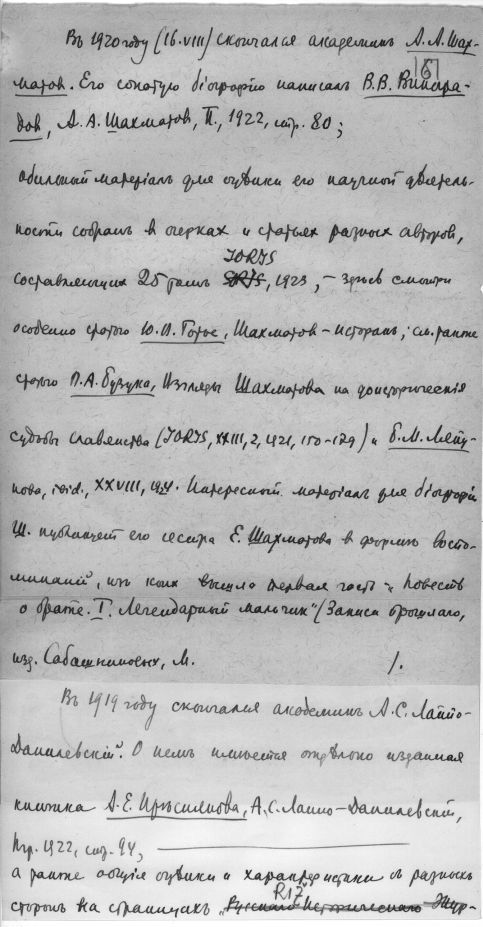 Въ 1920 году (16.VIII) скончался академикъ А. А. Шах-
матов. Его сжатую біографію написалъ В. В. Виногра-
дов, А. А. Шахматов, П., 1922, стр. 80;
обильный матеріалъ для оцѣнки его научной дѣятель-
ности собранъ в очерках и статьях разных авторов,
IORJS
составляющих 25 томъ, 1923, – здѣсь смотри
особенно статью Ю. В. Готье, Шахматов – историкъ; см. также
статью П. А. Бузука, Взгляды Шахматова на доисторическія
судьбы славянства (IORJS, XXIII, 2, 1921, 150-179) и Б. М. Ляпу-
нова, ibid., XXVIII, 1924. Интересный матеріалъ для біографіи
Ш. публикует его сестра Е. Шахматова в формѣ воспо-
минаній, из коих вышла первая часть „Повесть
о брате. I. Легендарный мальчик“ (Записи прошлаго,
изд. Сабашниковых, М. ).
Въ 1919 году скончался академикъ А. С. Лаппо-
Данилевскій. О немъ имѣется отдѣльно изданная
книжка А. Е. Прѣснякова, А. С. Лаппо-Данилевскій,
Птр. 1922, стр. 94,
а также общія оцѣнки и характеристики съ разных
RIŽ
сторонъ на страницахъ „Русскаго Историческаго Жур-